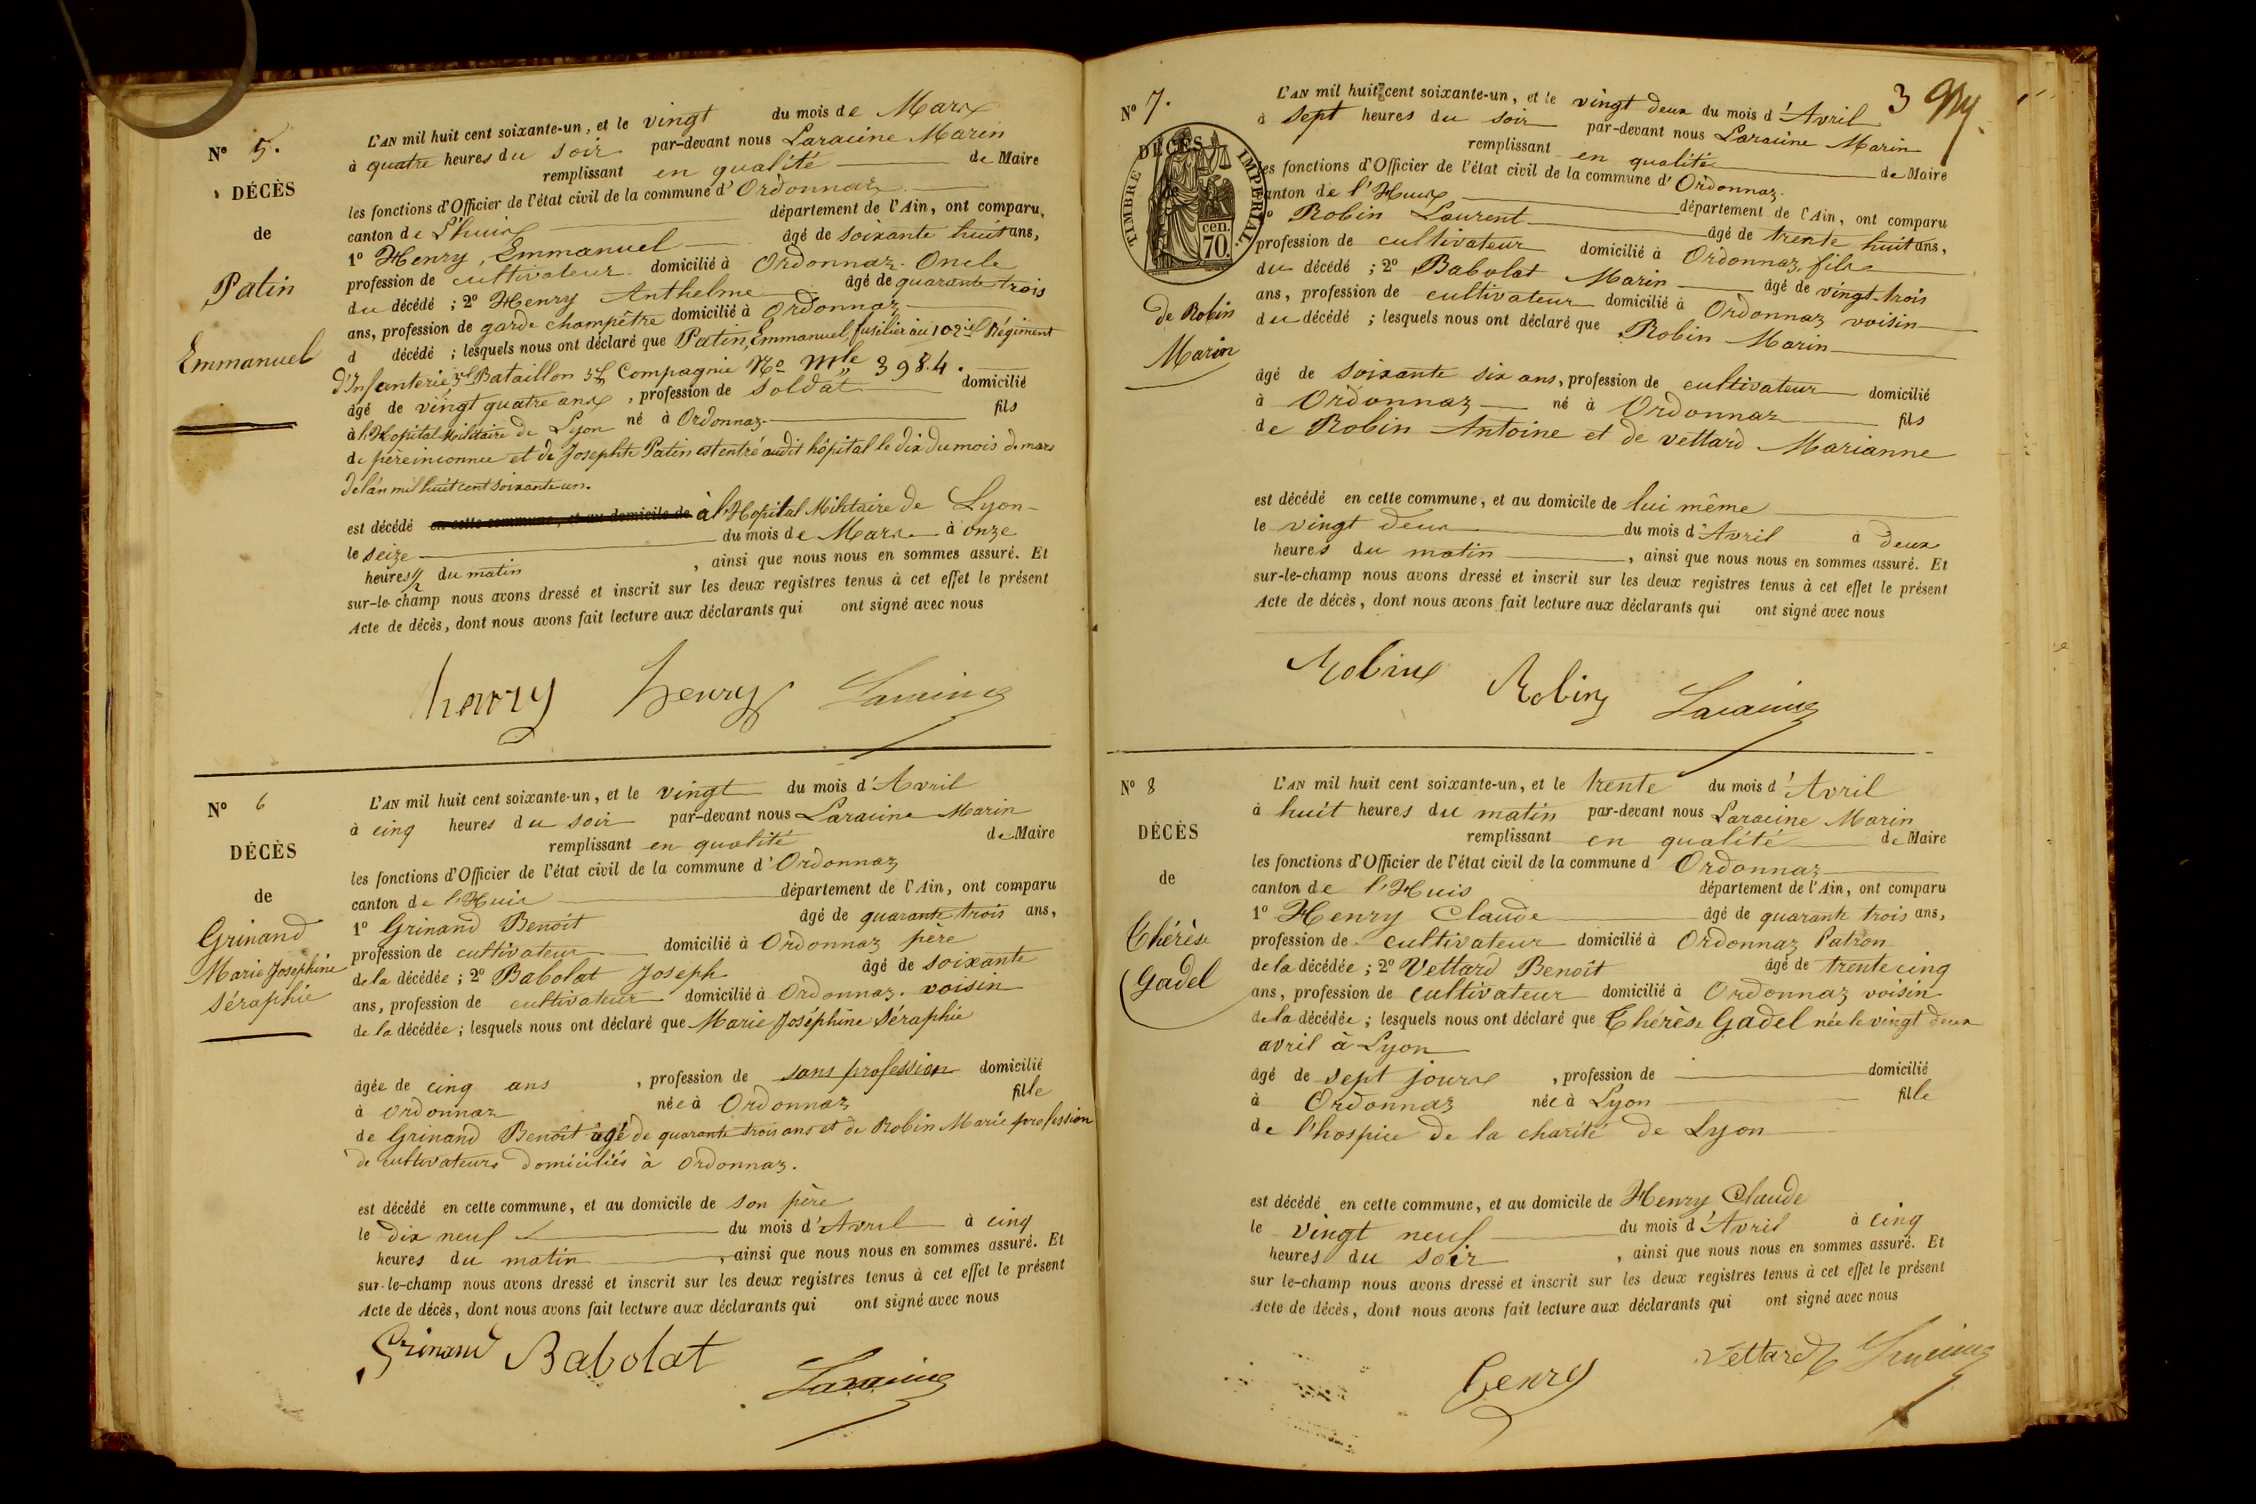 N° 5.
DÉCÈS
de
Patin
Emmanuel
L'AN mil huit cent soixante-un, et le vingt du mois de Mars
à quatre heures du soir par-devant nous Laracine Marin
remplissant en qualité de Maire
les fonctions d'Officier de l'état civil de la commune d'Ordonnaz
canton de L'huis département de l'Ain, ont comparu,
1° Henry, Emmanuel âgé de soixante huit ans,
profession de cultivateur domicilié à Ordonnaz. Oncle
du décédé ; 2° Henry Anthelme âgé de quarante trois
ans, profession de garde champêtre domicilié à Ordonnaz
d décédé ; lesquels nous ont déclaré que Patin, Emmanuel, fusilier au 102ie Régiment
d'Infanterie, 3e Bataillon 3e Compagnie No Mle 3984.
âgé de vingt quatre ans, profession de soldat domicilié
à l'Hopital Militaire de Lyon né à Ordonnaz. fils
de père inconnu et de Josephte Patin est entré audit hôpital le dix du mois de mars
de l'an mil huit cent soixante un.
est décédé en cette commune, et au domicile de à l'Hopital Militaire de Lyon
le seize du mois de Mars à onze
heures 1/2 du matin, ainsi que nous nous en sommes assuré. Et
sur-le-champ nous avons dressé et inscrit sur les deux registres tenus à cet effet le présent
Acte de décès, dont nous avons fait lecture aux déclarants qui ont signé avec nous
henry henry Laracine
N° 6
DÉCÈS
de
Grinand
Marie Joséphine
Séraphie
L'AN mil huit cent soixante-un, et le vingt du mois d'Avril
à cinq heures du soir par-devant nous Laracine Marin
remplissant en qualité de Maire
les fonctions d'Officier de l'état civil de la commune d'Ordonnaz
canton de l'Huis département de l'Ain, ont comparu
1° Grinand Benoit âgé de quarante trois ans,
profession de cultivateur domicilié à Ordonnaz père
de la décédée ; 2° Babolat Joseph âgé de soixante
ans, profession de cultivateur domicilié à Ordonnaz. voisin
de la décédée ; lesquels nous ont déclaré que Marie Joséphine Séraphie
âgée de cinq ans, profession de sans profession domicilié
à Ordonnaz née à Ordonnaz fille
de Grinand Benoît âgé de quarante trois ans et de Robin Marie profession
de cultivateurs domiciliés à Ordonnaz.
est décédé en cette commune, et au domicile de son père
le dix neuf du mois d'Avril à cinq
heures du matin, ainsi que nous nous en sommes assuré. Et
sur-le-champ nous avons dressé et inscrit sur les deux registres tenus à cet effet le présent
Acte de décès, dont nous avons fait lecture aux déclarants qui ont signé avec nous
Grinand Babolat Laracine
3
N° 7.
DÉCÈS
TIMBRE IMPERIAL.
cen. 70.
de Robin
Marin
L'AN mil huit cent soixante-un, et le vingt deux du mois d'Avril
à sept heures du soir par-devant nous Laracine Marin
remplissant en qualité de Maire
les fonctions d'Officier de l'état civil de la commune d'Ordonnaz.
canton de l'Huis département de l'Ain, ont comparu
1° Robin Laurent âgé de trente huit ans,
profession de cultivateur domicilié à Ordonnaz, fils
du décédé ; 2° Babolat Marin âgé de vingt-trois
ans, profession de cultivateur domicilié à Ordonnaz voisin
du décédé ; lesquels nous ont déclaré que Robin Marin
âgé de soixante six ans, profession de cultivateur domicilié
à Ordonnaz né à Ordonnaz fils
de Robin Antoine et de vettard Marianne
est décédé en cette commune, et au domicile de lui même
le vingt deux du mois d'Avril à deux
heures du matin, ainsi que nous nous en sommes assuré. Et
sur-le-champ nous avons dressé et inscrit sur les deux registres tenus à cet effet le présent
Acte de décès, dont nous avons fait lecture aux déclarants qui ont signé avec nous
Robin Robin Laracine
N° 8
DÉCÈS
de
Thérèse
Gadel
L'AN mil huit cent soixante-un, et le trente du mois d'Avril
à huit heures du matin par-devant nous Laracine Marin
remplissant en qualité de Maire
les fonctions d'Officier de l'état civil de la commune d Ordonnaz
canton de l'Huis département de l'Ain, ont comparu
1° Henry Claude âgé de quarante trois ans,
profession de cultivateur domicilié à Ordonnaz Patron
de la décédée ; 2° Vettard Benoît âgé de trente cinq
ans, profession de cultivateur domicilié à Ordonnaz voisin
de la décédée ; lesquels nous ont déclaré que Thérèse Gadel née le vingt deux
avril à Lyon
âgé de sept jours, profession de domicilié
à Ordonnaz née à Lyon fille
de l'hospice de la charité de Lyon
est décédé en cette commune, et au domicile de Henry Claude
le vingt neuf du mois d'Avril à cinq
heures du soir, ainsi que nous nous en sommes assuré. Et
sur le-champ nous avons dressé et inscrit sur les deux registres tenus à cet effet le présent
Acte de décès, dont nous avons fait lecture aux déclarants qui ont signé avec nous
henry Vettard Laracine